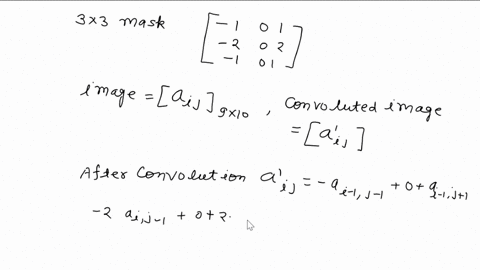 3×3 mask [ -1 0 1
-2 0 2
-1 0 1 ]
image = [a_{ij}]_{9×10} , Convoluted image
= [a'_{ij}]
After Convolution a'_{ij} = -a_{i-1, j-1} + 0 + a_{i-1, j+1}
-2 a_{i, j-1} + 0 + 2.